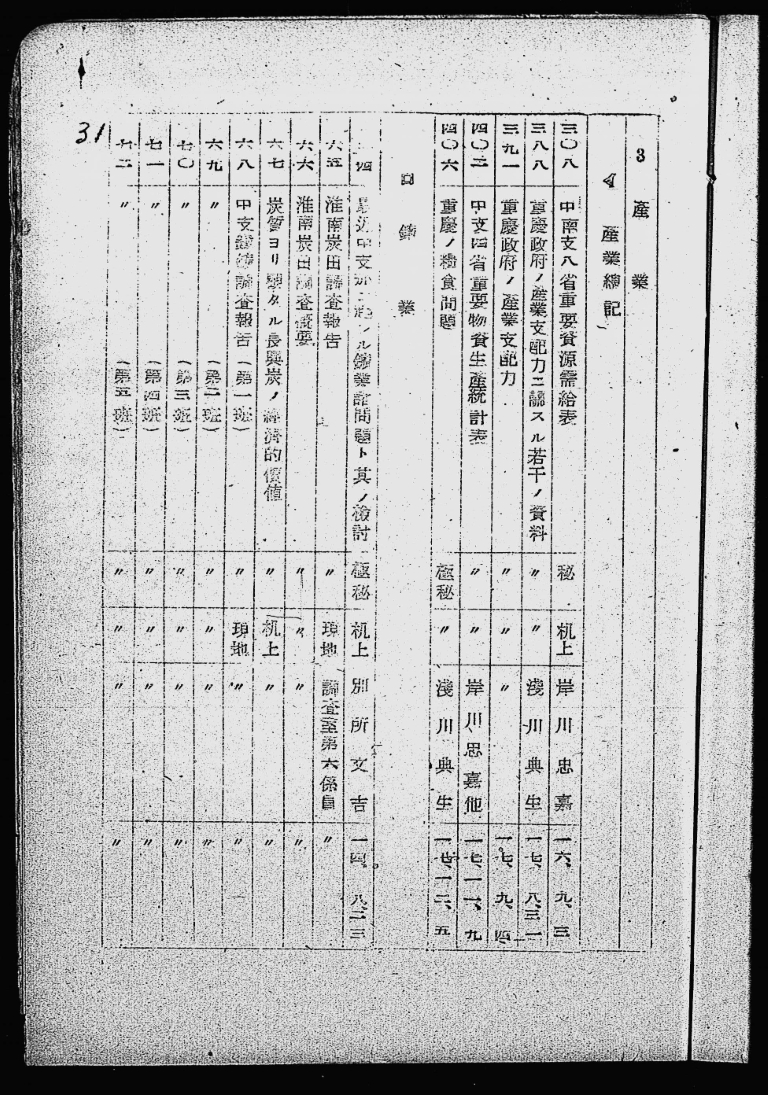 31
3 産業
産業総記
三〇八 中南支八省重要資源需給表 秘 机上 岸川忠嘉 一六、九、三
三八八 重慶政府ノ産業支配力ニ関スル若干ノ資料 〃 〃 淺川典生 一七、八、三一
三九一 重慶政府ノ産業支配力 〃 〃 〃 一七、九、四
四〇二 中支四省重要物資生産統計表 〃 〃 岸川忠嘉他 一七、一一、九
四〇六 重慶ノ糧食問題 極秘 〃 淺川典生 一七、一二、五
鑛業
四 最近中支 ル鑛業諸問題ト其ノ検討 極秘 机上 別所文吉 一四、八、二三
六五 淮南炭田調査報告 〃 現地 調査室第六係員 〃
六六 淮南炭田調査概要 〃 〃 〃 〃
六七 炭質ヨリ観タル長興炭ノ経済的價値 〃 机上 〃 〃
六八 中支 調査報告(第一班) 〃 現地 〃 〃
六九 〃 (第二班) 〃 〃 〃 〃
七〇 〃 (第三班) 〃 〃 〃 〃
七一 〃 (第四班) 〃 〃 〃 〃
七二 〃 (第五班) 〃 〃 〃 〃